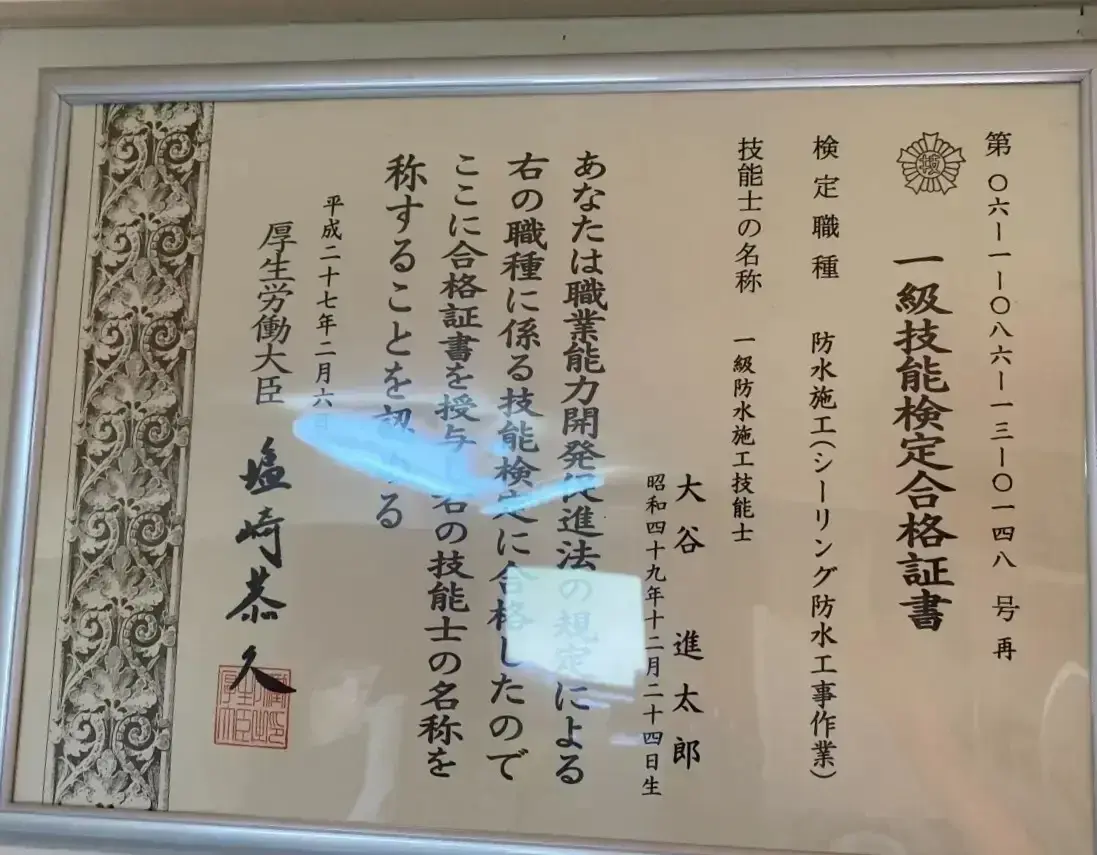 第〇六－一－〇八六－一三－〇一四八号再
一級技能検定合格証書
検定職種 防水施工(シーリング防水工事作業)
技能士の名称 一級防水施工技能士
大谷進太郎
昭和四十九年十二月二十四日生
あなたは職業能力開発促進法の規定による
右の職種に係る技能検定に合格したので
ここに合格証書を授与し右の技能士の名称を
称することを認める
平成二十七年二月六日
厚生労働大臣 塩崎恭久